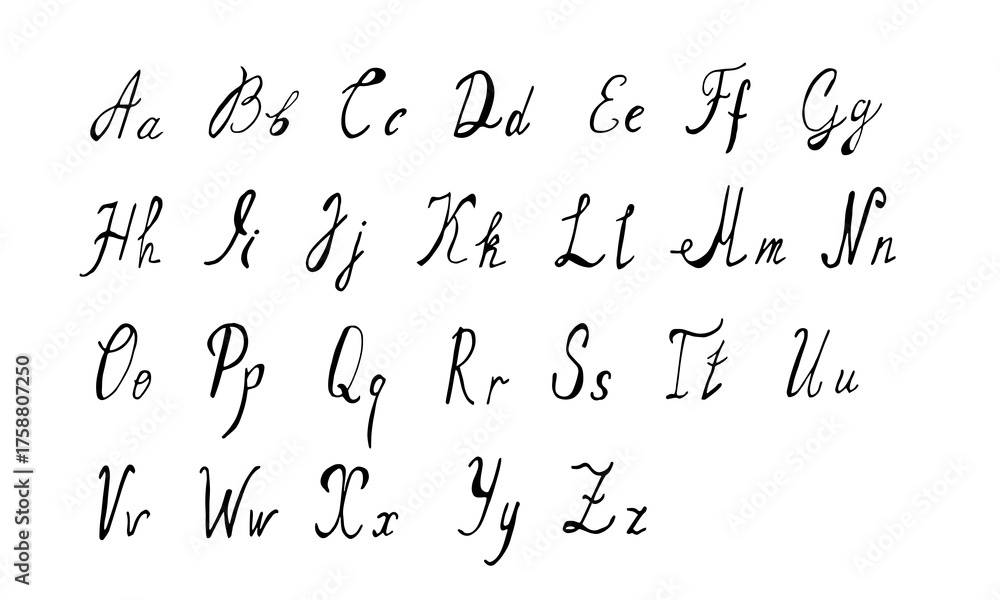 Aa Bb Cc Dd Ee Ff Gg
Hh Ii Jj Kk Ll Mm Nn
Oo Pp Qq Rr Ss Tt Uu
Vv Ww Xx Yy Zz
Adobe Stock | #1758807250